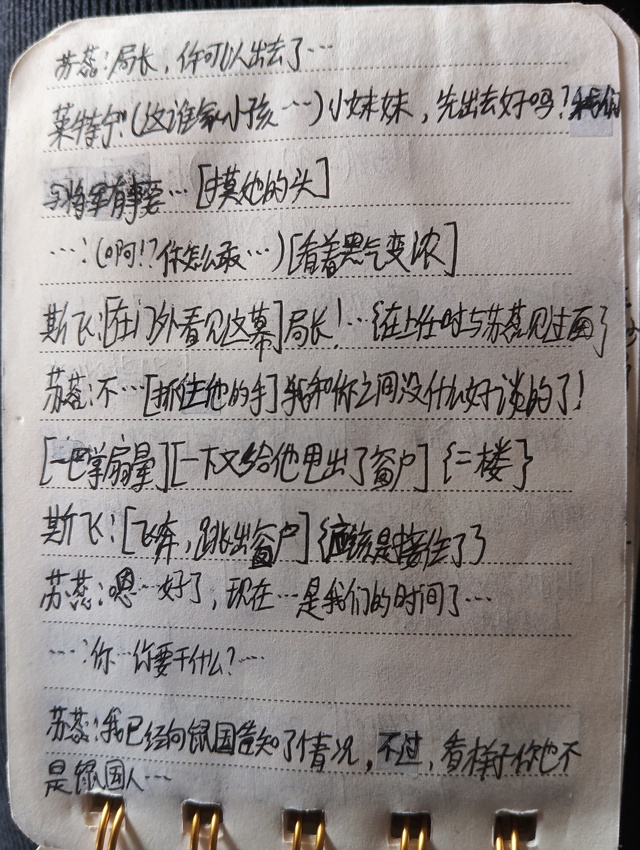 苏蕊:局长，你可以出去了…
莱特宁:(这谁家小孩…)小妹妹，先出去好吗?我们
与将军有事要…[摸她的头]
…:(啊!?你怎么敢…)[看着黑气变浓]
斯飞:[在门外看见这幕]局长!…{在上任时与苏蕊见过面}
苏蕊:不…[抓住他的手]我和你之间没什么好谈的了!
[一巴掌扇晕][一下又给他甩出了窗户]{二楼}
斯飞:[飞奔，跳出窗户]{应该是接住了}
苏蕊:嗯…好了，现在…是我们的时间了…
…:你…你要干什么?…
苏蕊:我已经向银国告知了情况，不过，看样子你也不
是银国人…